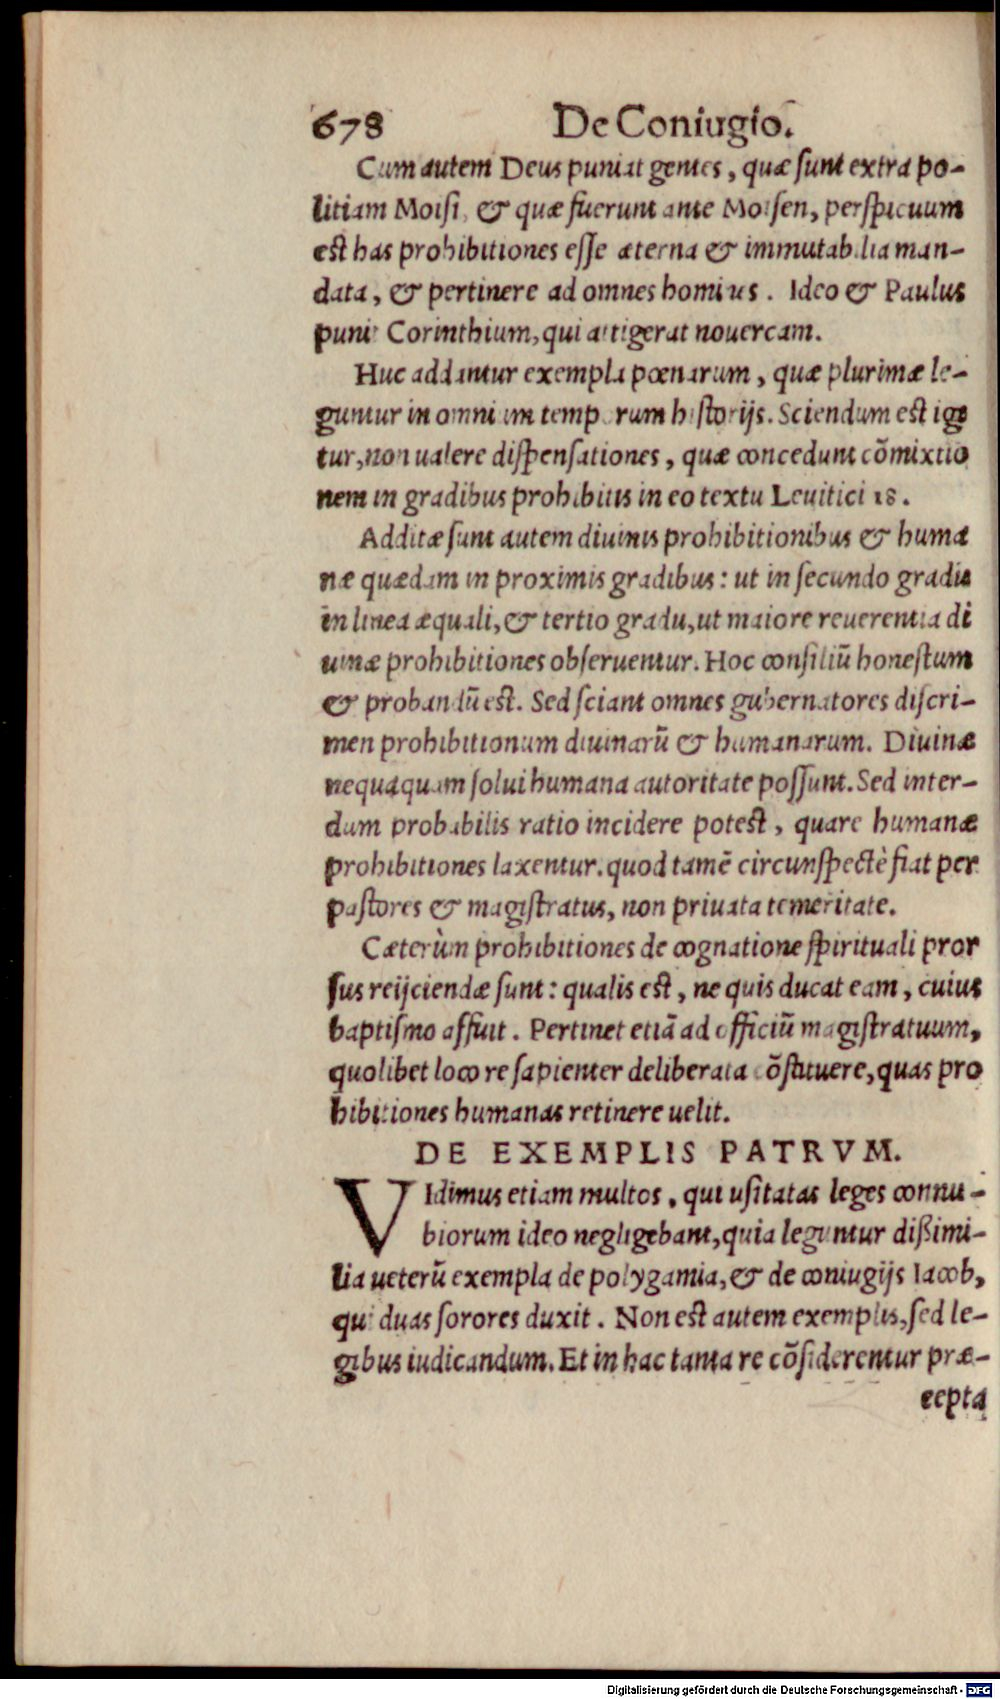 678 De Coniugio.
Cum autem Deus puniat gentes, quæ ſunt extra po-
litiam Moiſi, & quæ fuerunt ante Moiſen, perſpicuum
est has prohibitiones eſſe æterna & immutabilia man-
data, & pertinere ad omnes homines. Ideo & Paulus
punit Corinthium, qui attigerat nouercam.
Huc addantur exempla pœnarum, quæ plurimæ le-
guntur in omnium temporum hiſtorijs. Sciendum est igi
tur, non ualere diſpenſationes, quæ concedunt cõmixtio
nem in gradibus prohibitis in eo textu Leuitici 18.
Additæ ſunt autem diuinis prohibitionibus & huma
næ quædam in proximis gradibus: ut in ſecundo gradu
in linea æquali, & tertio gradu, ut maiore reuerentia di
uinæ prohibitiones obſeruentur. Hoc conſiliũ honeſtum
& probandũ est. Sed ſciant omnes gubernatores diſcri-
men prohibitionum diuinarũ & humanarum. Diuinæ
nequaquam ſolui humana autoritate poſſunt. Sed inter-
dum probabilis ratio incidere potest, quare humanæ
prohibitiones laxentur. quod tamẽ circunſpectè fiat per
paſtores & magiſtratus, non priuata temeritate.
Cæterùm prohibitiones de cognatione ſpirituali pror
ſus reijciendæ ſunt: qualis est, ne quis ducat eam, cuius
baptiſmo affuit. Pertinet etiã ad officiũ magiſtratuum,
quolibet loco re ſapienter deliberata cõſtituere, quas pro
hibitiones humanas retinere uelit.
DE EXEMPLIS PATRVM.
VIdimus etiam multos, qui uſitatas leges connu-
biorum ideo negligebant, quia leguntur dißimi-
lia ueterũ exempla de polygamia, & de coniugijs Iacob,
qui duas ſorores duxit. Non est autem exemplis, ſed le-
gibus iudicandum. Et in hac tanta re cõſiderentur præ-
cepta
Digitalisierung gefördert durch die Deutsche Forschungsgemeinschaft - DFG